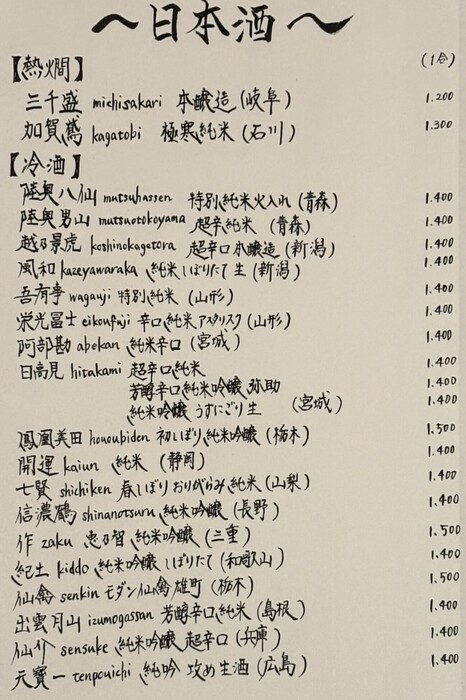 〜日本酒〜
【熱燗】 (1合)
三千盛 michisakari 本醸造 (岐阜) 1.200
加賀鳶 kagatobi 極寒純米 (石川) 1.300
【冷酒】
陸奥八仙 mutsuhassen 特別純米火入れ (青森) 1.400
陸奥男山 mutsuotokoyama 超辛純米 (青森) 1.400
越乃景虎 koshinokagetora 超辛口本醸造 (新潟) 1.400
風和 kazeyawaraka 純米しぼりたて生 (新潟) 1.400
吾有事 wagauji 特別純米 (山形) 1.400
栄光冨士 eikoufuji 辛口純米アスタリスク (山形) 1.400
阿部勘 abekan 純米辛口 (宮城) 1.400
日高見 hitakami 超辛口純米 1.400
芳醇辛口純米吟醸 弥助 1.400
純米吟醸 うすにごり生 (宮城) 1.400
鳳凰美田 hououbiden 初しぼり純米吟醸 (栃木) 1.500
開運 kaiun 純米 (静岡) 1.400
七賢 shichiken 春しぼりおりがらみ純米 (山梨) 1.400
信濃鶴 shinanotsuru 純米吟醸 (長野) 1.400
作 zaku 恵乃智 純米吟醸 (三重) 1.500
紀土 kiddo 純米吟醸 しぼりたて (和歌山) 1.400
仙禽 senkin モダン仙禽雄町 (栃木) 1.500
出雲月山 izumogassan 芳醇辛口純米 (島根) 1.400
仙介 sensuke 純米吟醸 超辛口 (兵庫) 1.400
天寶一 tenpouichi 純吟 攻め生酒 (広島) 1.400